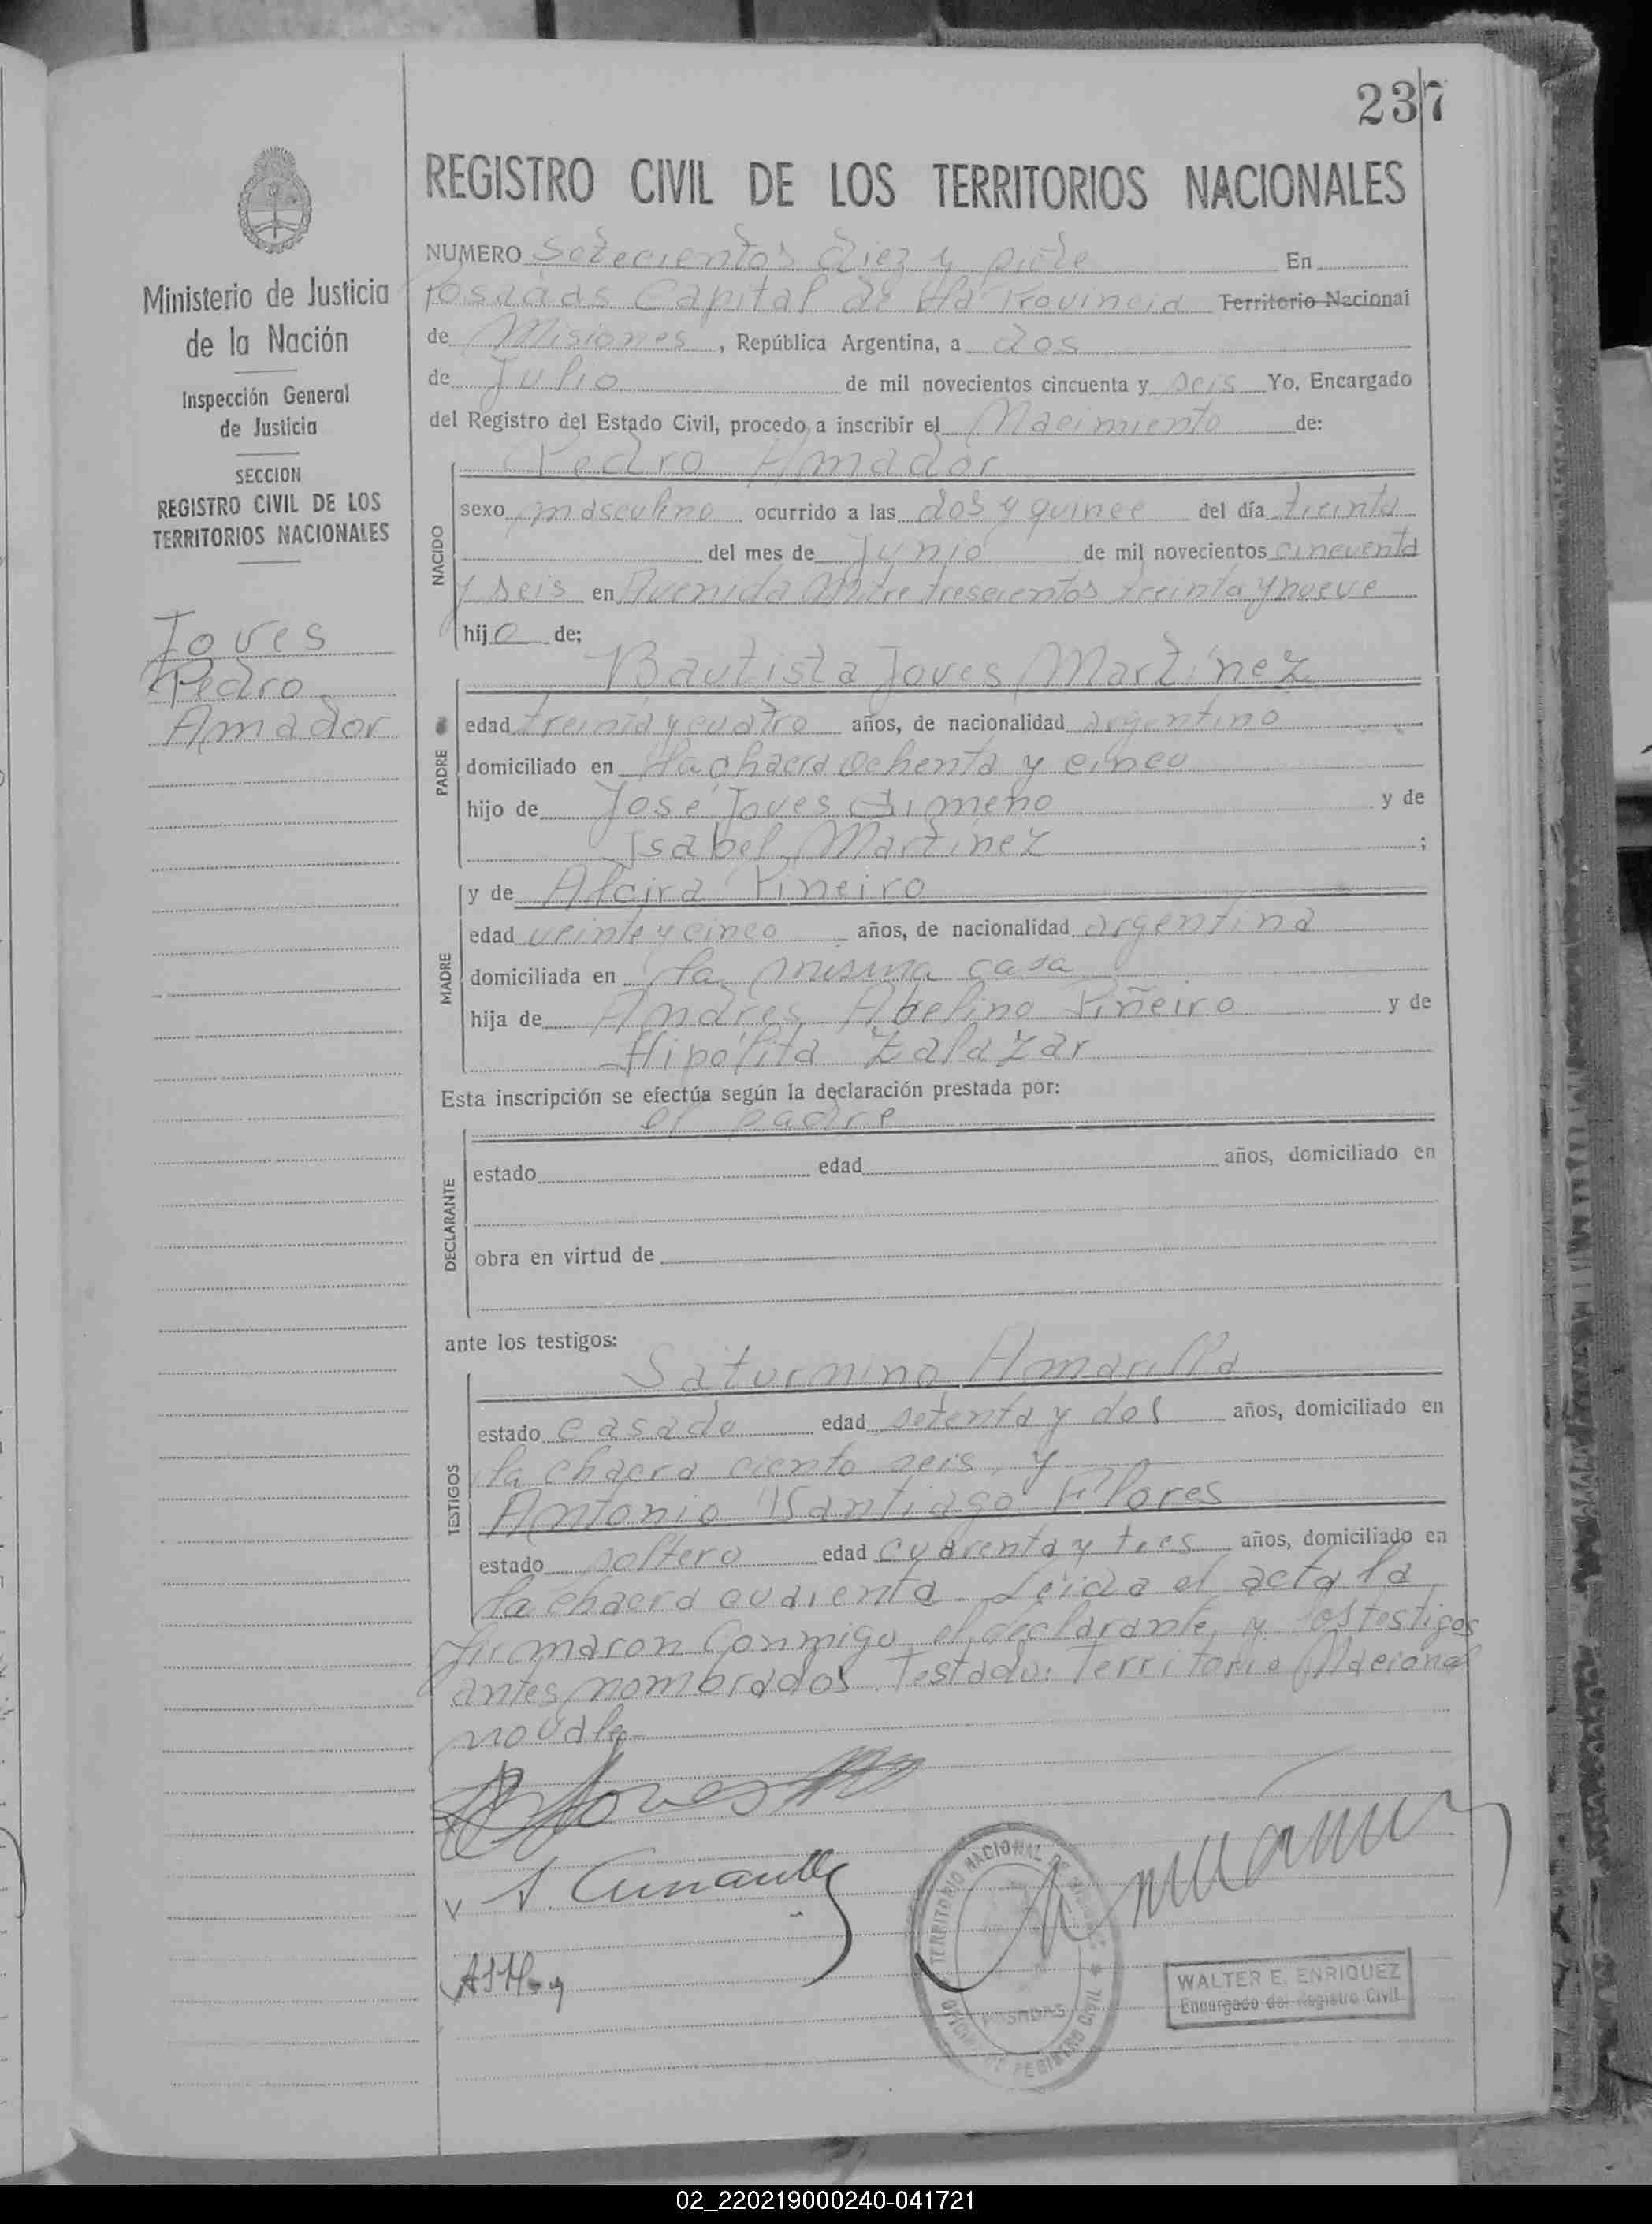 237
REGISTRO CIVIL DE LOS TERRITORIOS NACIONALES
Ministerio de Justicia
de la Nación
Inspección General
de Justicia
SECCION
REGISTRO CIVIL DE LOS
TERRITORIOS NACIONALES
Joves
Pedro
Amador
NUMERO Setecientos diez y siete En
Posadas Capital de la Provincia Territorio Nacional
de Misiones, República Argentina, a dos
de Julio de mil novecientos cincuenta y seis Yo, Encargado
del Registro del Estado Civil, procedo a inscribir el Nacimiento de:
NACIDO
Pedro Amador
sexo masculino ocurrido a las dos y quince del día treinta
del mes de Junio de mil novecientos cincuenta
y seis en Avenida Mitre trescientos treinta y nueve
hijo de;
PADRE
Bautista Joves Martínez
edad treinta y cuatro años, de nacionalidad argentino
domiciliado en la chacra ochenta y cinco
hijo de José Joves Gimeno y de
Isabel Martínez ;
MADRE
y de Alcira Pineiro
edad veinte y cinco años, de nacionalidad argentina
domiciliada en la misma casa
hija de Andrés Abelino Piñeiro y de
Hipólita Zalazar
Esta inscripción se efectúa según la declaración prestada por:
el padre
DECLARANTE
estado edad años, domiciliado en
obra en virtud de
ante los testigos:
TESTIGOS
Saturnino Amarilla
estado casado edad setenta y dos años, domiciliado en
la chacra ciento seis, y
Antonio Santiago Flores
estado soltero edad cuarenta y tres años, domiciliado en
la chacra cuarenta. Leida el acta la
firmaron conmigo el declarante y los testigos
antes nombrados. Testado: Territorio Nacional
no vale
TERRITORIO NACIONAL DE
POSADAS
OFICINA DE REGISTRO CIVIL
WALTER E. ENRIQUEZ
Encargado del Registro Civil
02_220219000240-041721